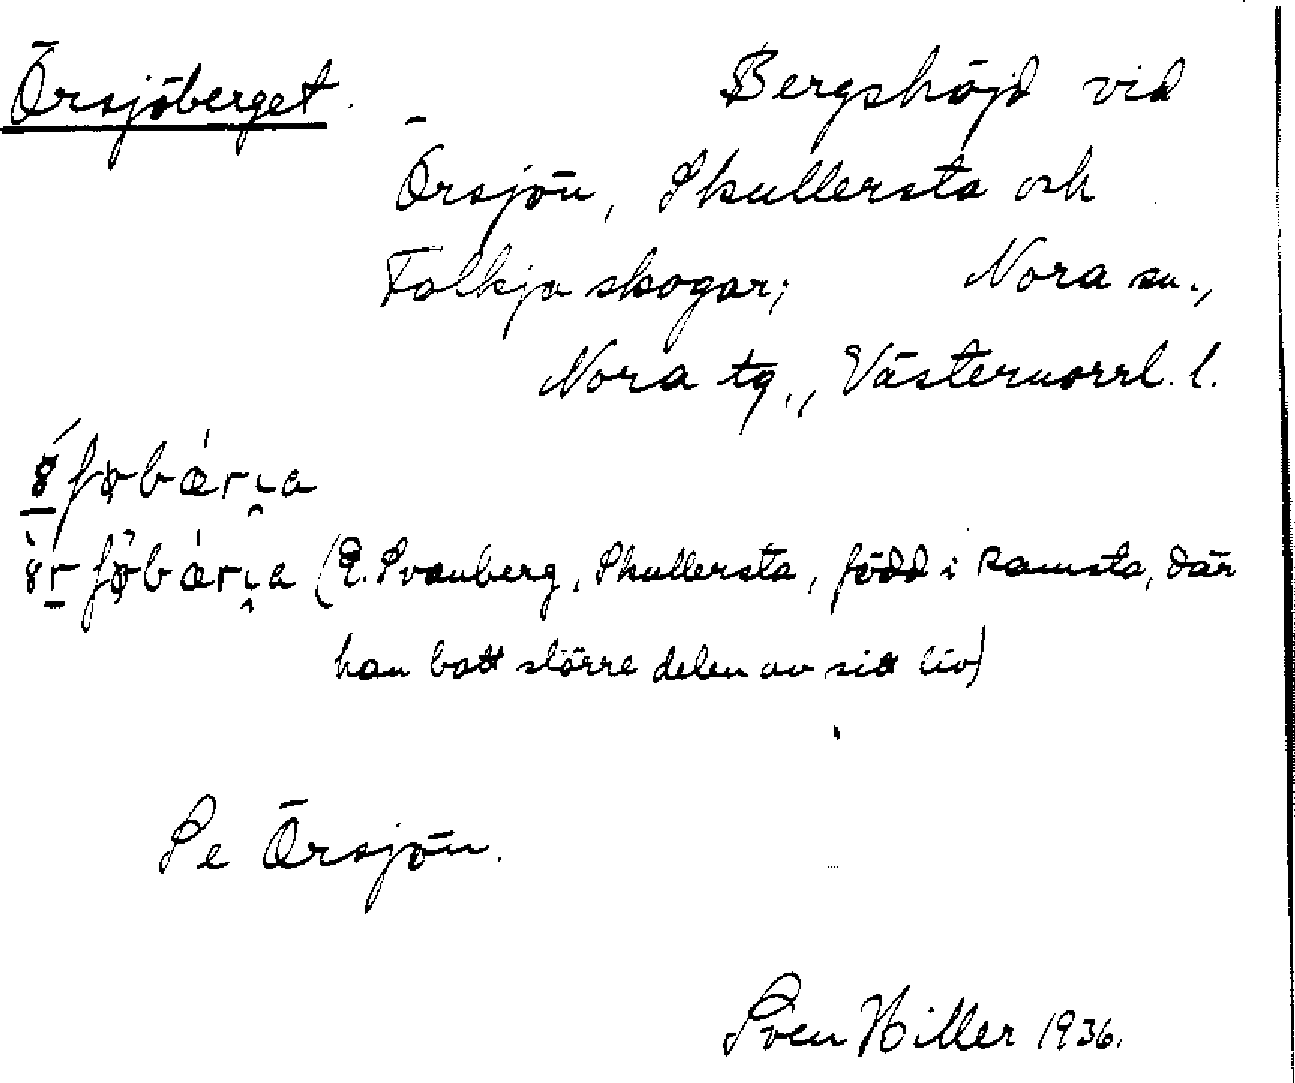 Örsjöberget.
Bergshöjd vid
Örsjön, Skullersta och
Falkja skogar; Nora sn.,
Nora tg., Västernorrl. l.
(E. Svanberg, Skullersta, född i Ramsta, där
han bott större delen av sitt liv)
Se Örsjön.
Sven Hiller 1936.